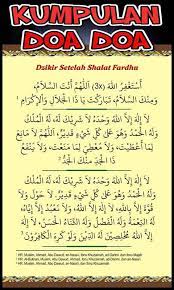 KUMPULAN
DOA DOA
Dzikir Setelah Shalat Fardhu
أَسْتَغْفِرُ اللهَ (3x) اَللَّهُمَّ أَنْتَ السَّلاَمُ،
وَمِنْكَ السَّلاَمُ، تَبَارَكْتَ يَا ذَا الْجَلاَلِ وَاْلإِكْرَامِ
لاَ إِلَهَ إِلاَّ اللهُ وَحْدَهُ لاَ شَرِيْكَ لَهُ، لَهُ الْمُلْكُ
وَلَهُ الْحَمْدُ وَهُوَ عَلَى كُلِّ شَيْءٍ قَدِيْرٌ، اَللَّهُمَّ لاَ مَانِعَ
لِمَا أَعْطَيْتَ، وَلاَ مُعْطِيَ لِمَا مَنَعْتَ، وَلاَ يَنْفَعُ
ذَا الْجَدِّ مِنْكَ الْجَدُّ
لاَ إِلَهَ إِلاَّ اللهُ وَحْدَهُ لاَ شَرِيْكَ لَهُ، لَهُ الْمُلْكُ
وَلَهُ الْحَمْدُ وَهُوَ عَلَى كُلِّ شَيْءٍ قَدِيْرٌ. لاَ حَوْلَ وَلاَ
قُوَّةَ إِلاَّ بِاللهِ، لاَ إِلَهَ إِلاَّ اللهُ، وَلاَ نَعْبُدُ إِلاَّ إِيَّاهُ،
لَهُ النِّعْمَةُ وَلَهُ الْفَضْلُ وَلَهُ الثَّنَاءُ الْحَسَنُ، لاَ إِلَهَ
إِلاَّ اللهُ مُخْلِصِيْنَ لَهُ الدِّيْنَ وَلَوْ كَرِهَ الْكَافِرُوْنَ
HR. Muslim, Ahmad, Abu Dawud,
HR. Muslim, Ahmad, Abu Dawud,